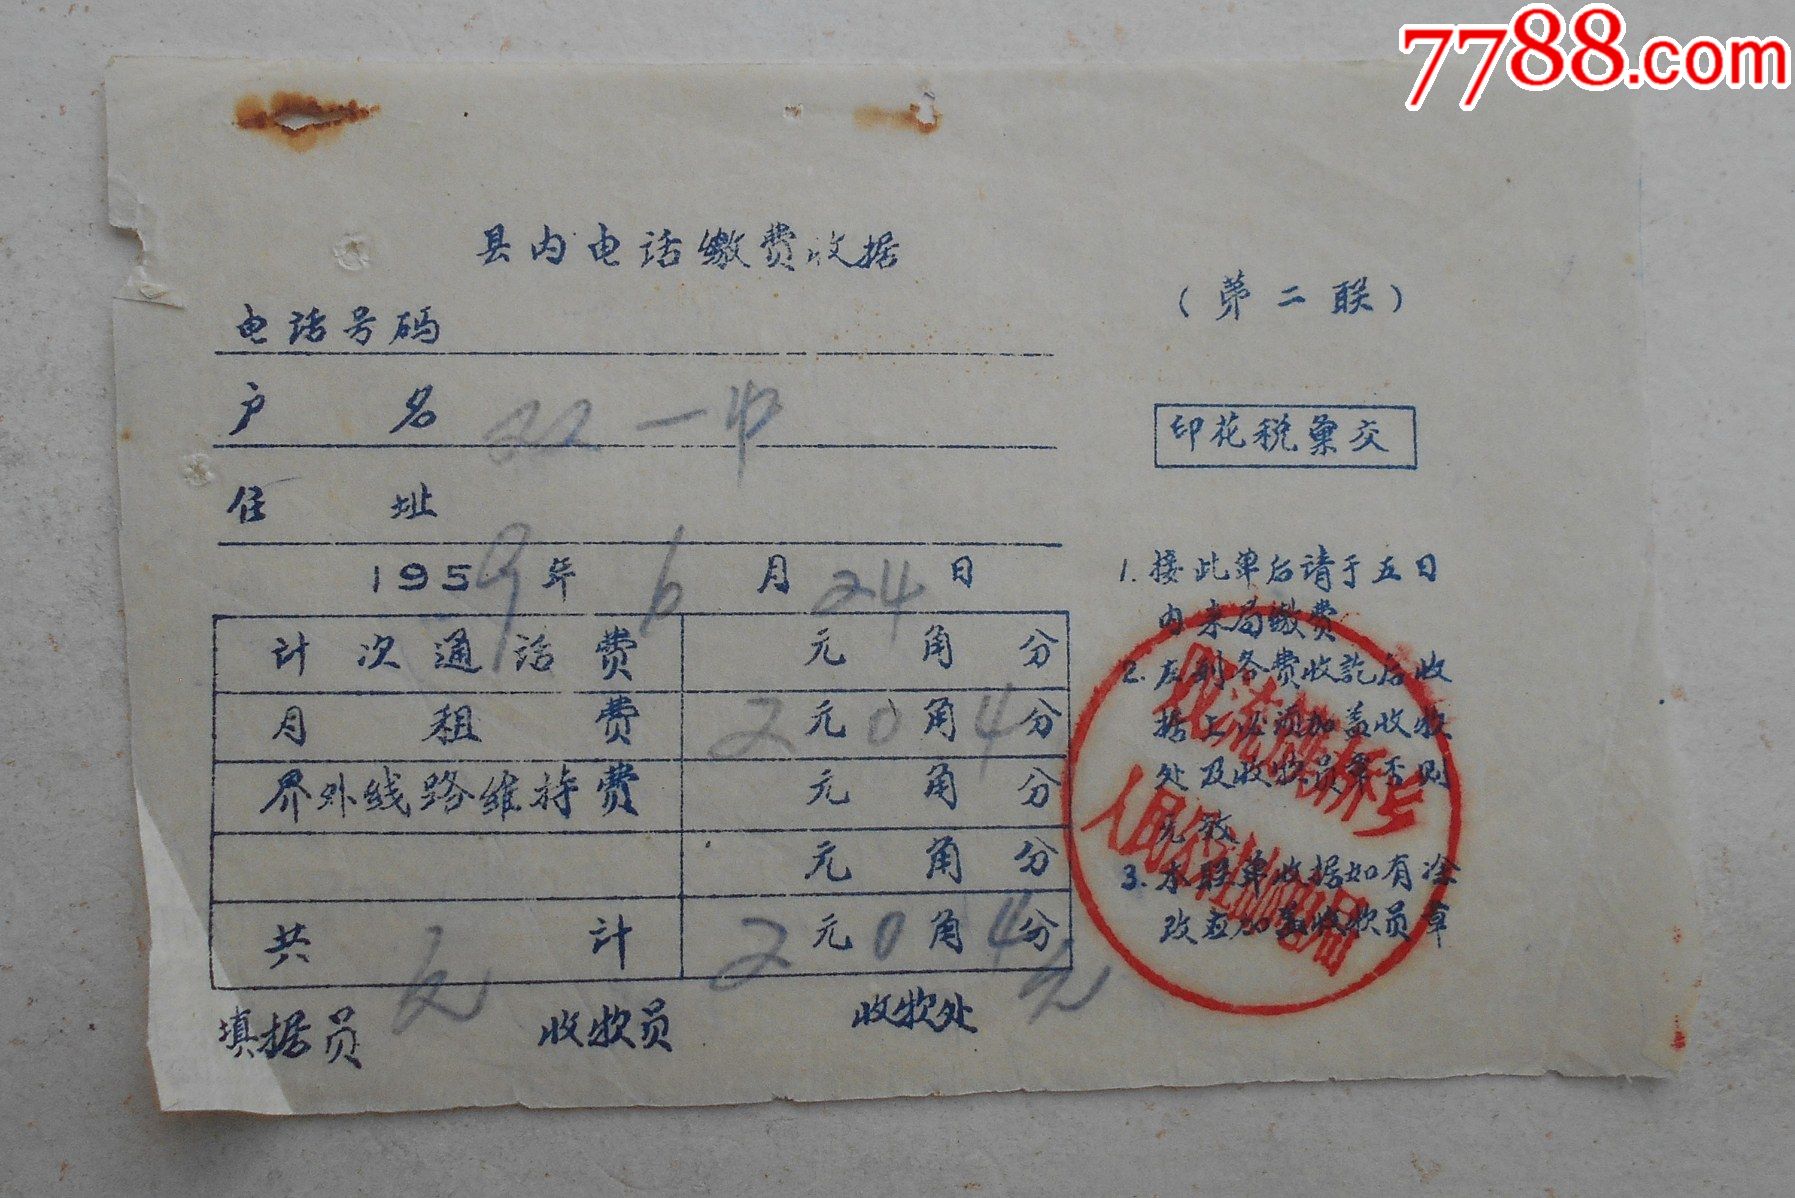 7788.com
县内电话缴费收据
(第二联)
电话号码
户名 一中
印花税彙交
住址
1959年6月24日
计次通话费 元角分
月租费 2元0角4分
界外线路维持费 元角分
元角分
共计 2元0角4分
填据员 收款员 收款处
1. 接此单后请于五日
内来局缴费
2. 左列各费收訖后收
据上必须加盖收款
处及收款员章否则
无效
3. 本联单收据如有涂
改应加盖收款员章
人民